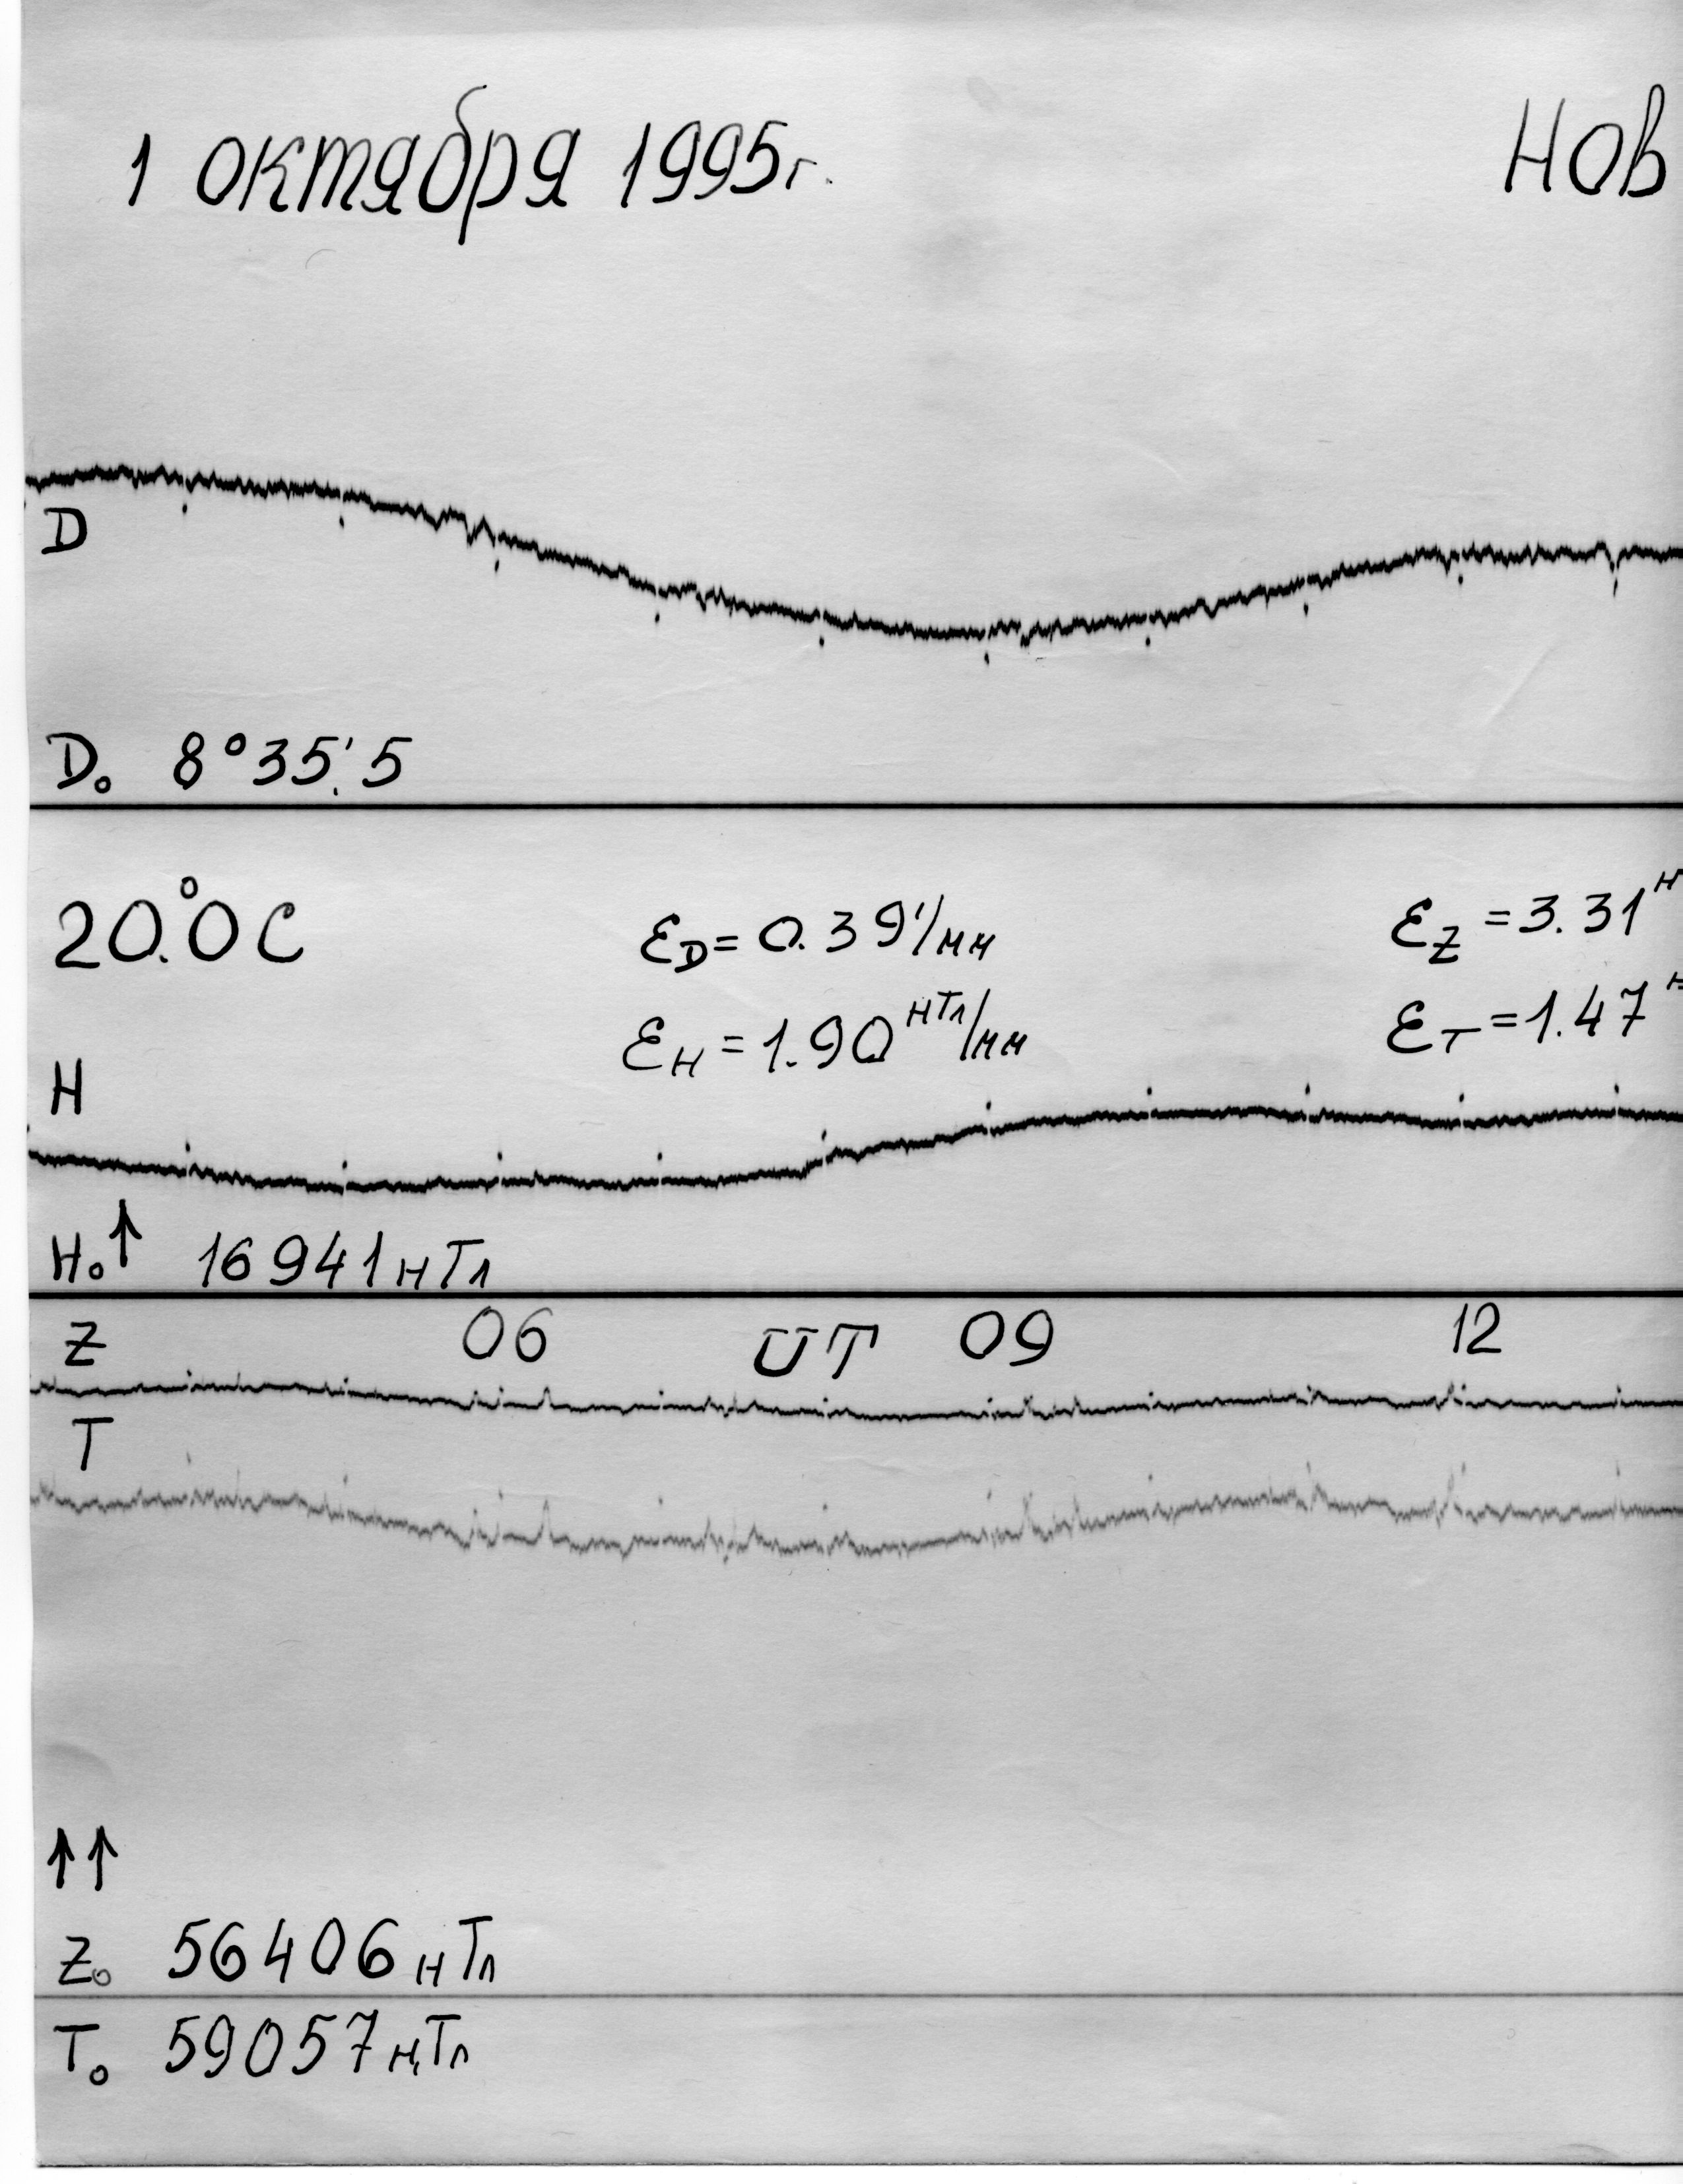 1 октября 1995г. Нов
D
D₀ 8°35′.5
20.°0 C
ε_D = 0.39′/мм
ε_Z = 3.31 н
ε_H = 1.90 нТл/мм
ε_T = 1.47 н
H
H₀↑ 16941 нТл
Z 06 UT 09 12
T
↑↑
Z₀ 56406 нТл
T₀ 59057 нТл